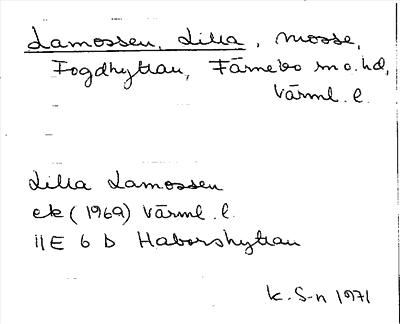 Lamossen, Lilla, mosse,
Fogdhyttan, Färnebo sn o. hd,
Värml. l.
Lilla Lamossen
ek (1969) Värml. l.
11E 6 b Haborshyttan
k. S-n 1971